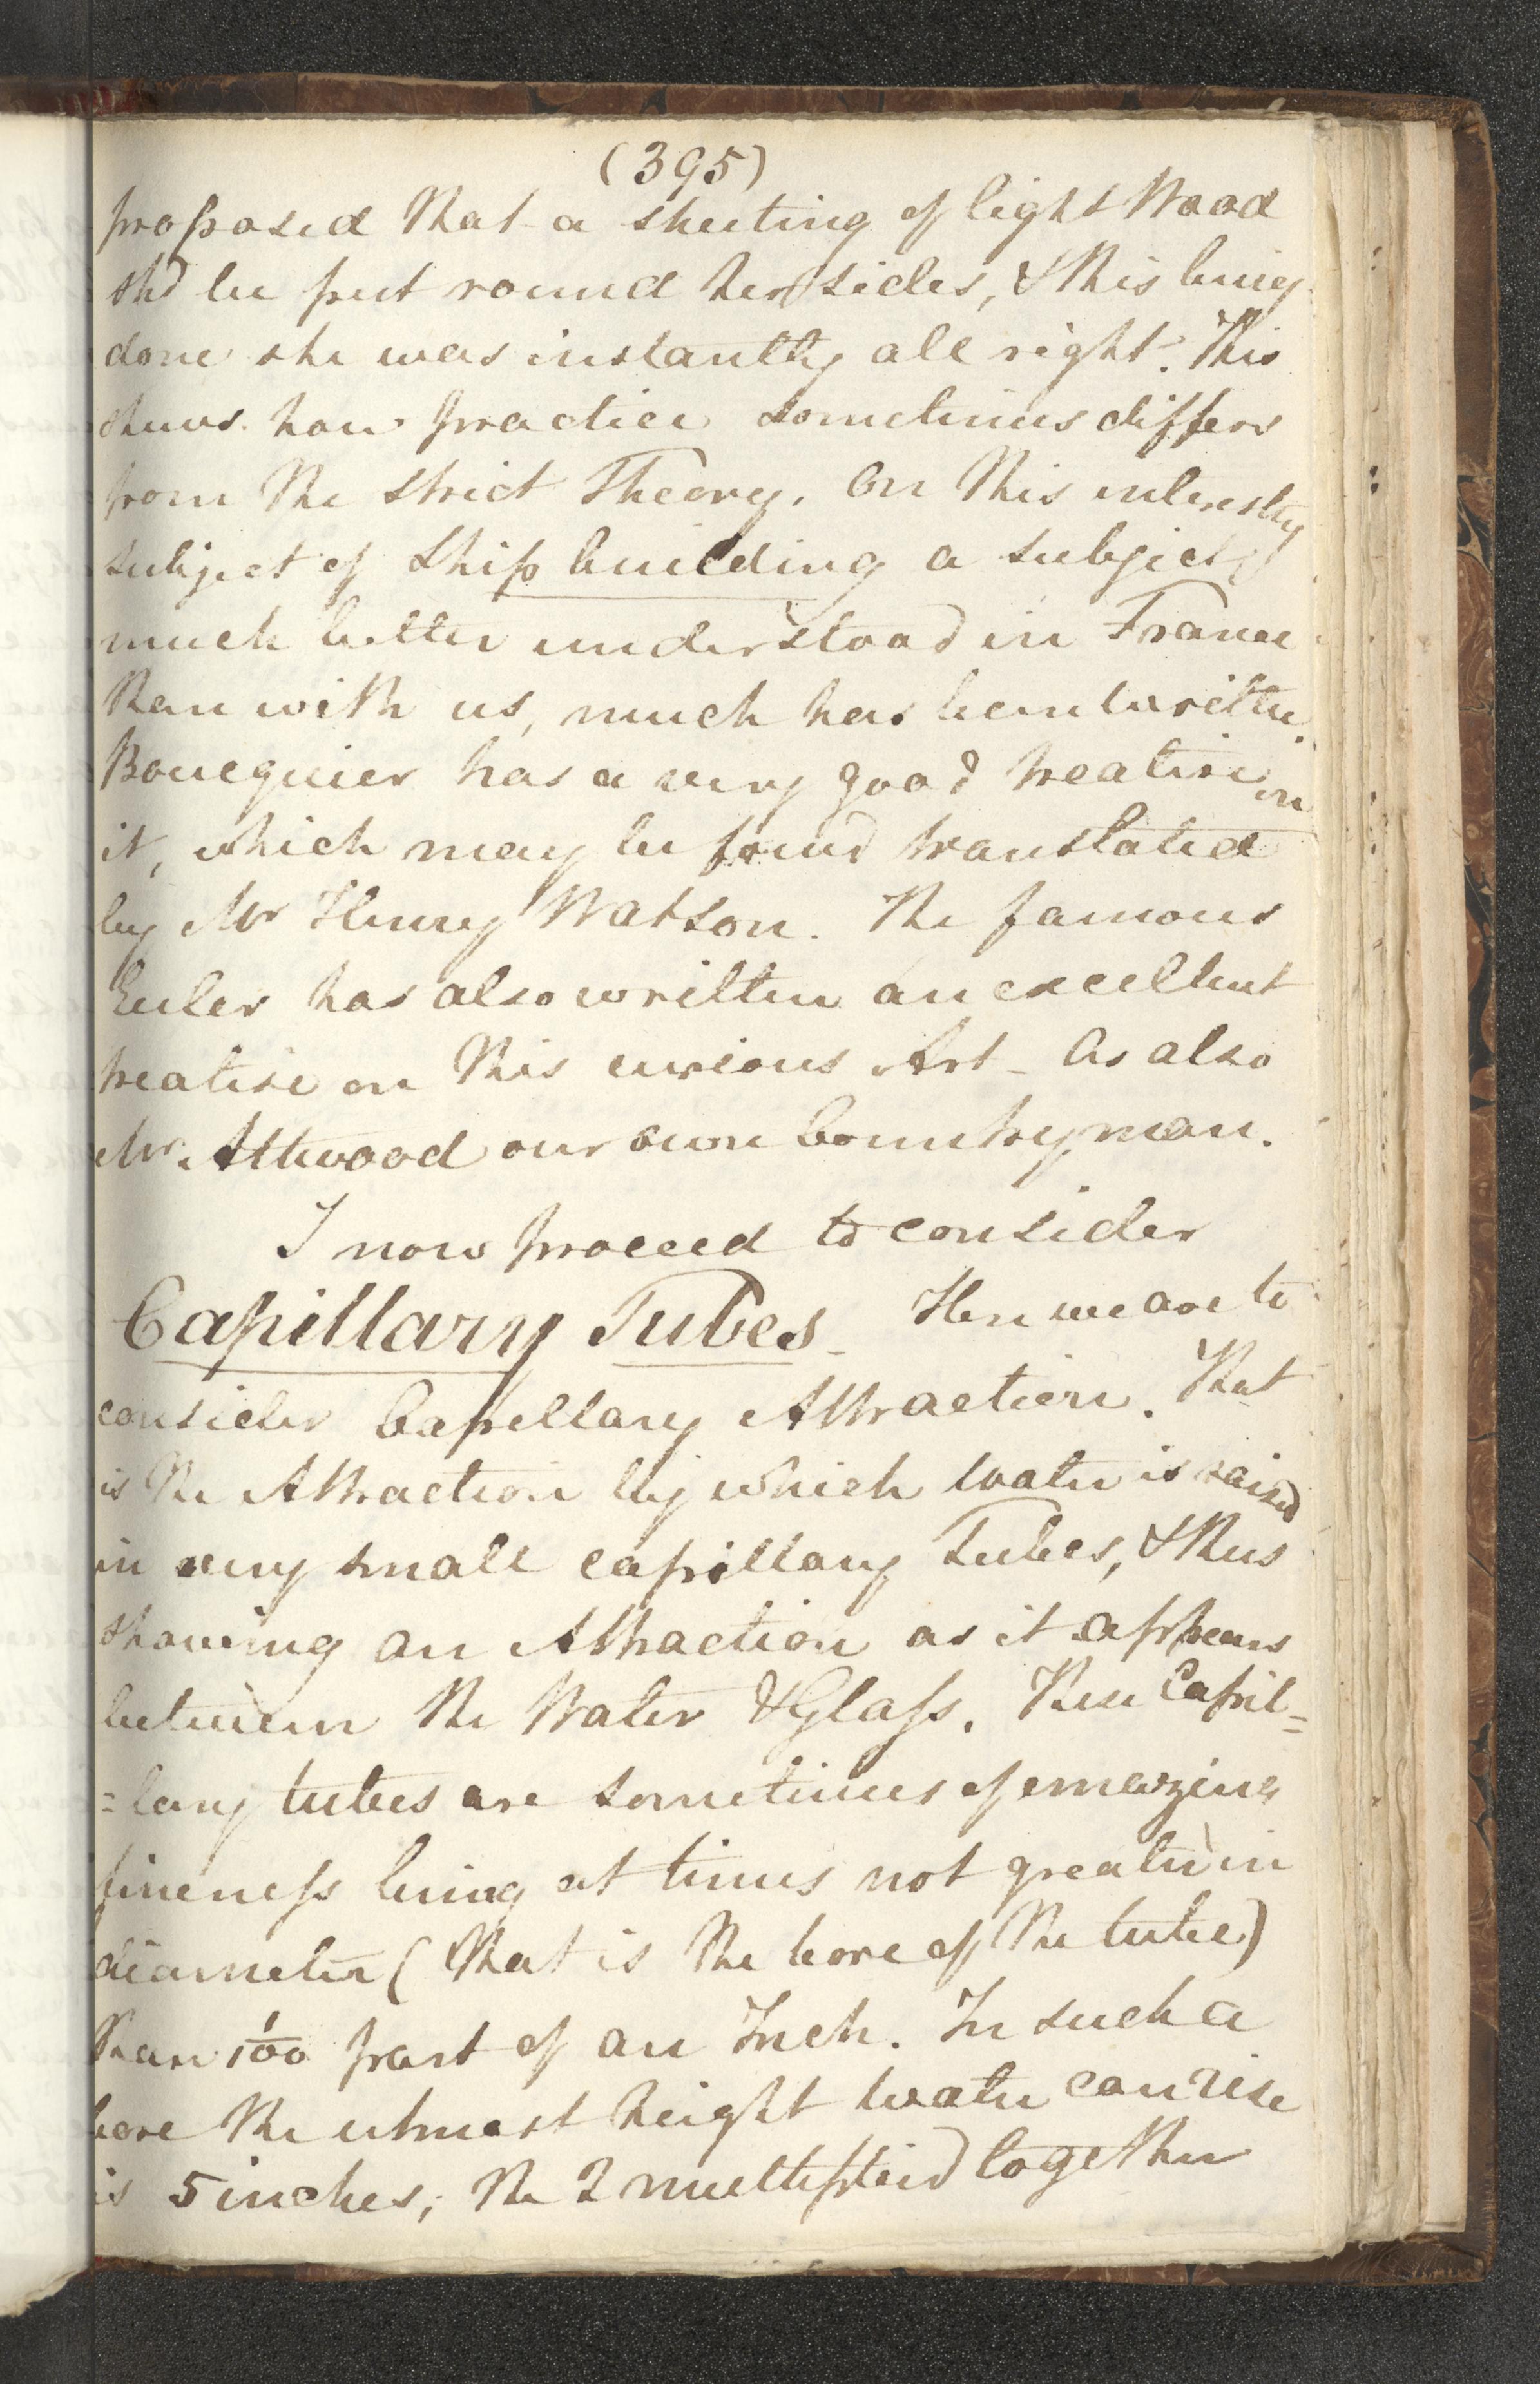 (395)
proposed that a sheeting of light Wood
shd be put round her sides, & this being
done she was instantly all right. This
shews how practice sometimes differs
from the strict Theory. On this interestg
subject of Ship building a subject
much better understood in France
than with us, much has been written.
Boueguier has a very good treatise on
it, which may be found translated
by Mr Henry Watson. The famous
Euler has also written an excellent
treatise on this curious Art - As also
Mr. Attwood our own Countryman.
I now proceed to consider
Capillary Tubes - Here we are to
consider Capillary Attraction. That
is the Attraction by which water is raised
in very small capillary Tubes, & thus
showing an Attraction as it appears
between the Water & Glass. These Capil=
=lary tubes are sometimes of emazing
fineness being at times not greater in
diameter (that is the bore of the tube)
than 1/100 part of an Inch. In such a
bore the utmost height water can rise
is 5 inches; the 2 multiplied together